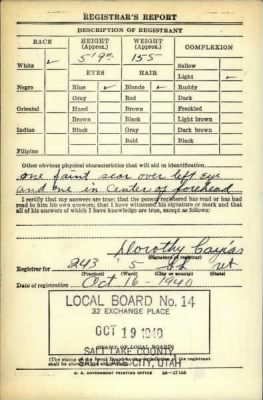 REGISTRAR'S REPORT
DESCRIPTION OF REGISTRANT
RACE HEIGHT (Approx.) WEIGHT (Approx.) COMPLEXION
5'9" 155
White ✓ Sallow
EYES HAIR Light ✓
Negro Blue ✓ Blonde ✓ Ruddy
Gray Red Dark
Oriental Hazel Brown Freckled
Brown Black Light brown
Indian Black Gray Dark brown
Bald Black
Filipino
Other obvious physical characteristics that will aid in identification
one faint scar over left eye
and one in center of forehead
I certify that my answers are true; that the person registered has read or has had
read to him his own answers; that I have witnessed his signature or mark and that
all of his answers of which I have knowledge are true, except as follows:
Dorothy
(Signature of registrar)
Registrar for 243 5
(Precinct) (Ward) (City or county) (State)
Date of registration Oct 16 - 1940
LOCAL BOARD No. 14
32 EXCHANGE PLACE
OCT 19 1940
(STAMP OF LOCAL BOARD)
SALT LAKE COUNTY
SALT LAKE CITY, UTAH
(The stamp of the Local Board having jurisdiction of the registrant
shall be placed in the above space)
U. S. GOVERNMENT PRINTING OFFICE